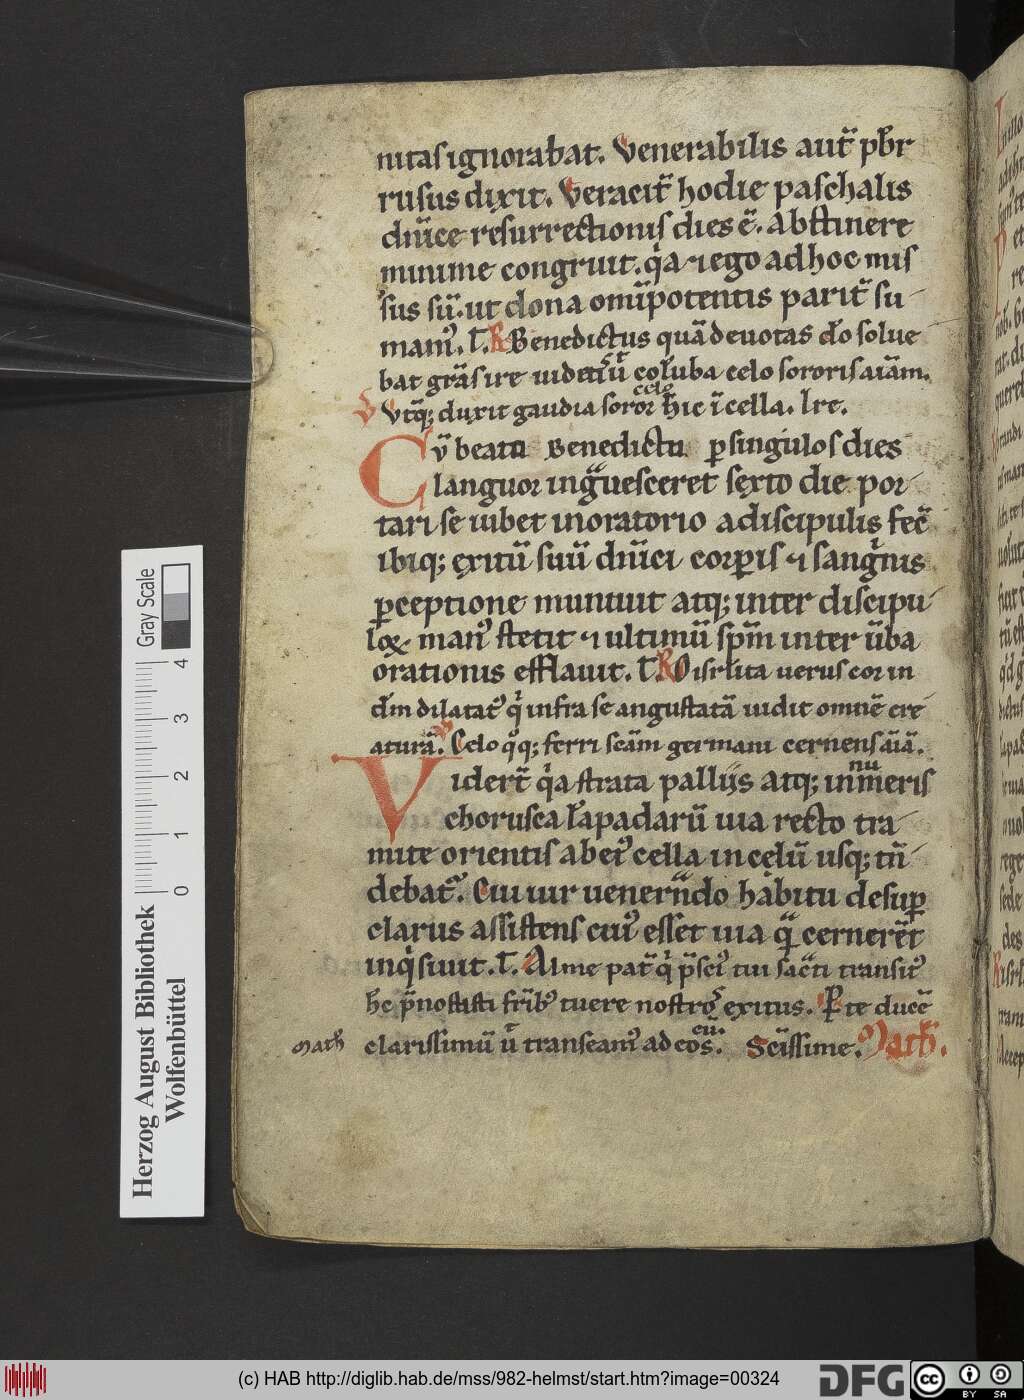 nitas ignorabat. Venerabilis aut̄ pb̄r
rusus dixit. Veracit̄ hodie paschalis
dn̄ice resurrectionis dies ē. Abstinere
minime congruit. qa ⁊ ego ad hoc mis
sus sū. ut dona omīpotentis parit̄ su
mam᷒. T. R Benedictus quā deuotas dō solue
bat grās ire uidet̄ ū coluba celo sororis aīam.
V Vtq; duxit gaudia soror hic ī cella. Ire.
celo
Cū beatu Benedictu ꝑ singulos dies
languor ingͣuesceret sexto die por
tari se iubet inoratorio a discipulis fec̄
ibiq; exitū suū dn̄ici corꝑis ⁊ sangnis
ꝑceptione muniuit atq; inter discipu
loꝝ man᷒ stetit ⁊ ultimū spm̄ inter ūba
orationis efflauit. T. R O isrl̄ita uerus cor in
dm̄ dilatat᷒ q infra se angustatā uidit omnē cre
aturā. V Celo qq; ferri scām germani cernens aīā.
Videt̄ qa strata pallijs atq; inn̄meris
nu
chorusca lāpadarū uia recto tra
mite orientis ab ei᷒ cella in celū usq; tē
debat᷒. Cui uir uenerndo habitu desuꝑ
clarus assistens cui᷒ esset uia qͣ cernerēt
inqsiuit. T. Alme pat̄ q p̄sci᷒ tui sacͣti transit᷒
hc p̄nostasti frīb᷒ tuere nostroꝝ exitus. V Ꝑ te ducē
clarissimū ū transeam᷒ ad eos.
eu.
Scīssime. Math̄.
Math̄
Gray Scale
4
3
2
1
0
Herzog August Bibliothek
Wolfenbüttel
(c) HAB http://diglib.hab.de/mss/982-helmst/start.htm?image=00324
DFG
cc BY SA